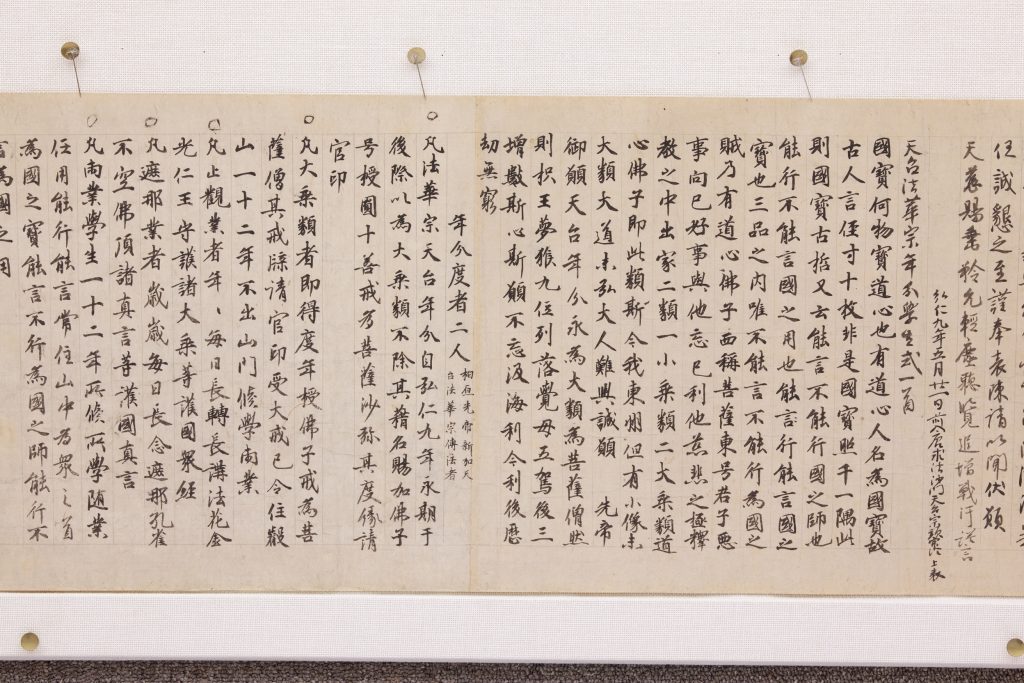 任誠懇之至謹奉表陳請以聞伏願
天慈賜垂矜允輕塵聽覽追增戰汗謹言
弘仁九年五月廿一日前入唐求法沙門天台宗最澄上表
天台法華宗年分學生式一首
國寶何物寶道心也有道心人名為國寶故
古人言徑寸十枚非是國寶照千一隅此
則國寶古哲又云能言不能行國之師也
能行不能言國之用也能行能言國之
寶也三品之内唯不能言不能行為國之
賊乃有道心佛子西稱菩薩東号君子惡
事向己好事與他忘己利他慈悲之極釋
教之中出家二類一小乘類二大乘類道
心佛子即此類斯今我東州但有小像未
大類大道未弘大人難興誠願　先帝
御願天台年分永為大類為菩薩僧然
則枳王夢猴九位列落覺母五駕後三
增數斯心斯願不忘汲海利今利後歷
劫無窮
年分度者二人
柏原先帝新加天
台法華宗傳法者
凡法華宗天台年分自弘仁九年永期于
後際以為大乘類不除其籍名賜加佛子
号授圓十善戒為菩薩沙彌其度縁請
官印
凡大乘類者即得度年授佛子戒為菩
薩僧其戒牒請官印受大戒已令住叡
山一十二年不出山門修學兩業
凡止觀業者年〻每日長轉長講法花金
光仁王守護諸大乘等護國衆經
凡遮那業者歳歳每日長念遮那孔雀
不空佛頂諸真言等護國真言
凡兩業學生一十二年所修所學随業
任用能行能言常住山中為衆之首
為國之寶能言不行為國之師能行不
言為國之用